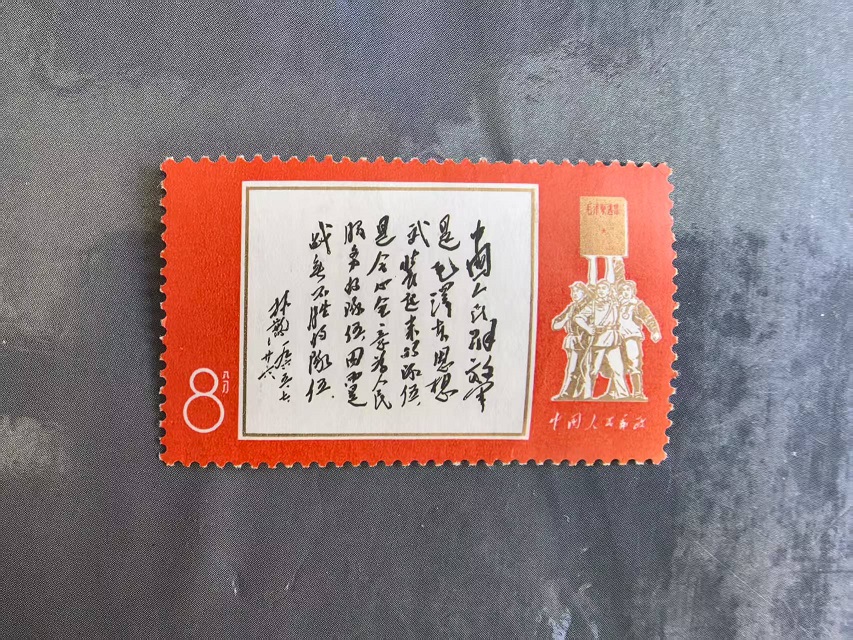 中國人民解放军
是毛澤东思想
武装起来的队伍,
是全心全意为人民
服务的队伍,因而是
战无不胜的队伍.
林彪
一九六五、七、
廿六
8
八分
毛泽东选集
中国人民邮政